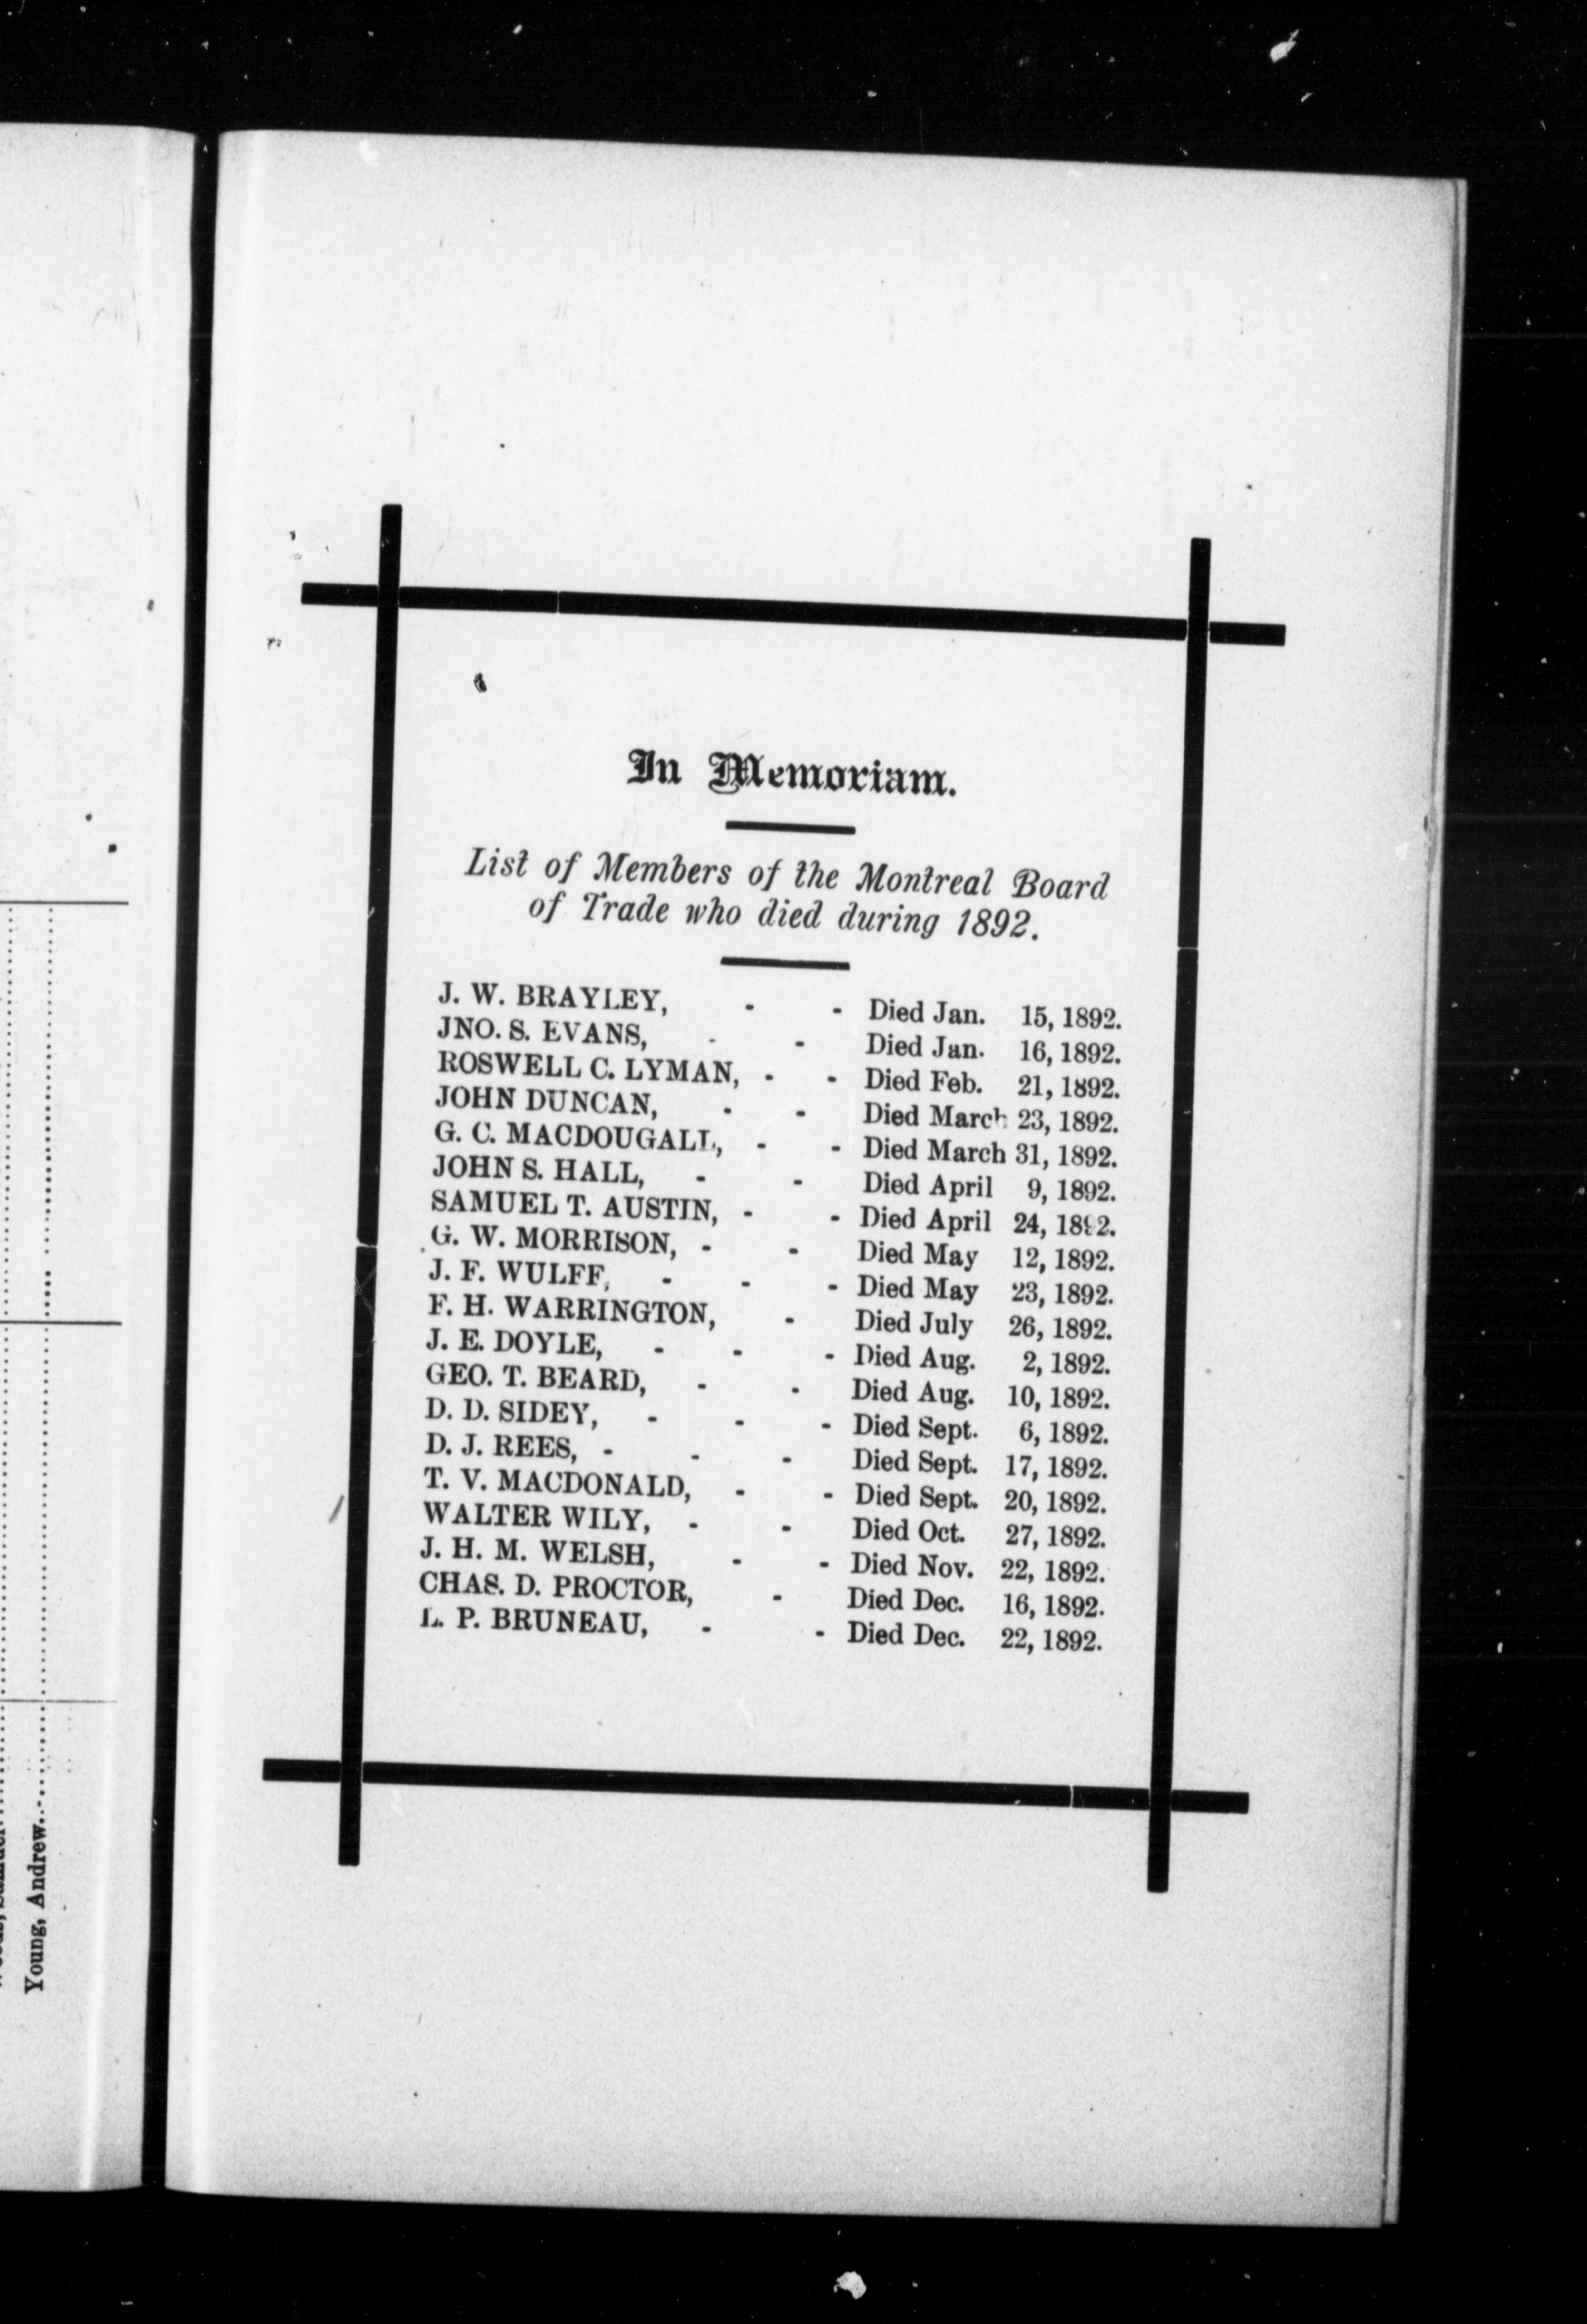 In Memoriam.
List of Members of the Montreal Board
of Trade who died during 1892.
J. W. BRAYLEY, - - Died Jan. 15, 1892.
JNO. S. EVANS, - - Died Jan. 16, 1892.
ROSWELL C. LYMAN, - - Died Feb. 21, 1892.
JOHN DUNCAN, - - Died March 23, 1892.
G. C. MACDOUGALL, - - Died March 31, 1892.
JOHN S. HALL, - - Died April 9, 1892.
SAMUEL T. AUSTIN, - - Died April 24, 1892.
G. W. MORRISON, - - Died May 12, 1892.
J. F. WULFF, - - - Died May 23, 1892.
F. H. WARRINGTON, - Died July 26, 1892.
J. E. DOYLE, - - - Died Aug. 2, 1892.
GEO. T. BEARD, - - Died Aug. 10, 1892.
D. D. SIDEY, - - - Died Sept. 6, 1892.
D. J. REES, - - - Died Sept. 17, 1892.
T. V. MACDONALD, - - Died Sept. 20, 1892.
WALTER WILY, - - Died Oct. 27, 1892.
J. H. M. WELSH, - - Died Nov. 22, 1892.
CHAS. D. PROCTOR, - Died Dec. 16, 1892.
L. P. BRUNEAU, - - Died Dec. 22, 1892.
Young, Andrew